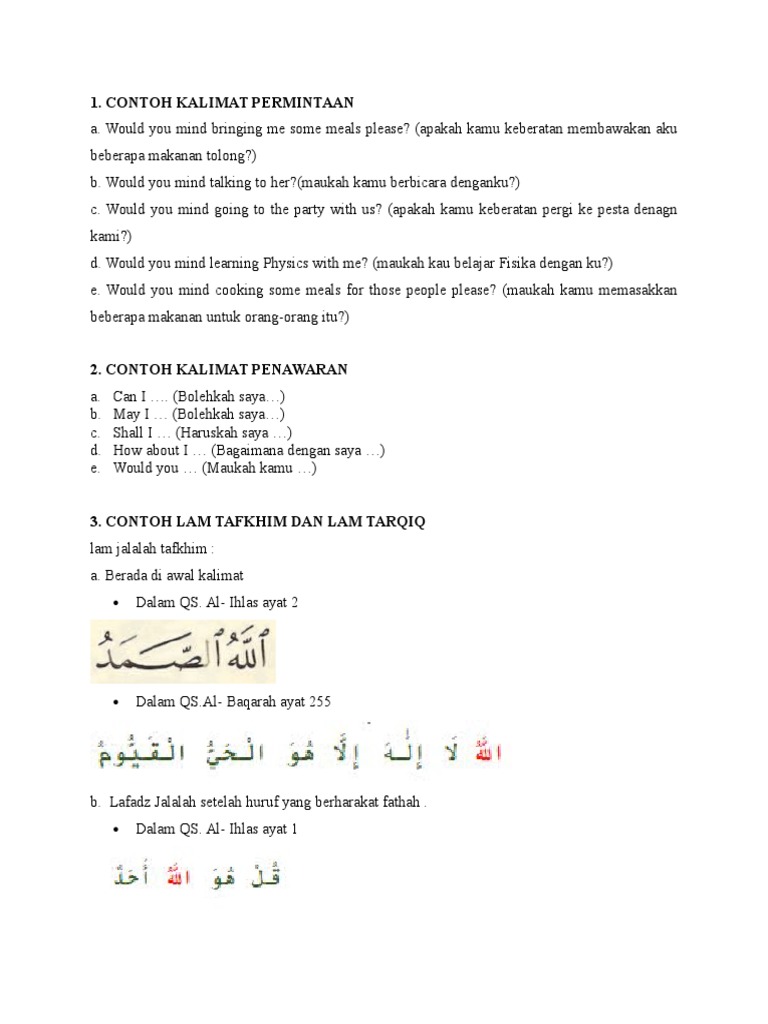 1. CONTOH KALIMAT PERMINTAAN
a. Would you mind bringing me some meals please? (apakah kamu keberatan membawakan aku
beberapa makanan tolong?)
b. Would you mind talking to her?(maukah kamu berbicara denganku?)
c. Would you mind going to the party with us? (apakah kamu keberatan pergi ke pesta denagn
kami?)
d. Would you mind learning Physics with me? (maukah kau belajar Fisika dengan ku?)
e. Would you mind cooking some meals for those people please? (maukah kamu memasakkan
beberapa makanan untuk orang-orang itu?)
2. CONTOH KALIMAT PENAWARAN
a. Can I …. (Bolehkah saya…)
b. May I … (Bolehkah saya…)
c. Shall I … (Haruskah saya …)
d. How about I … (Bagaimana dengan saya …)
e. Would you … (Maukah kamu …)
3. CONTOH LAM TAFKHIM DAN LAM TARQIQ
lam jalalah tafkhim :
a. Berada di awal kalimat
• Dalam QS. Al- Ihlas ayat 2
ٱللَّهُ ٱلصَّمَدُ
• Dalam QS.Al- Baqarah ayat 255
اللَّهُ لَا إِلَٰهَ إِلَّا هُوَ الْحَيُّ الْقَيُّومُ
b. Lafadz Jalalah setelah huruf yang berharakat fathah .
• Dalam QS. Al- Ihlas ayat 1
قُلْ هُوَ اللَّهُ أَحَدٌ